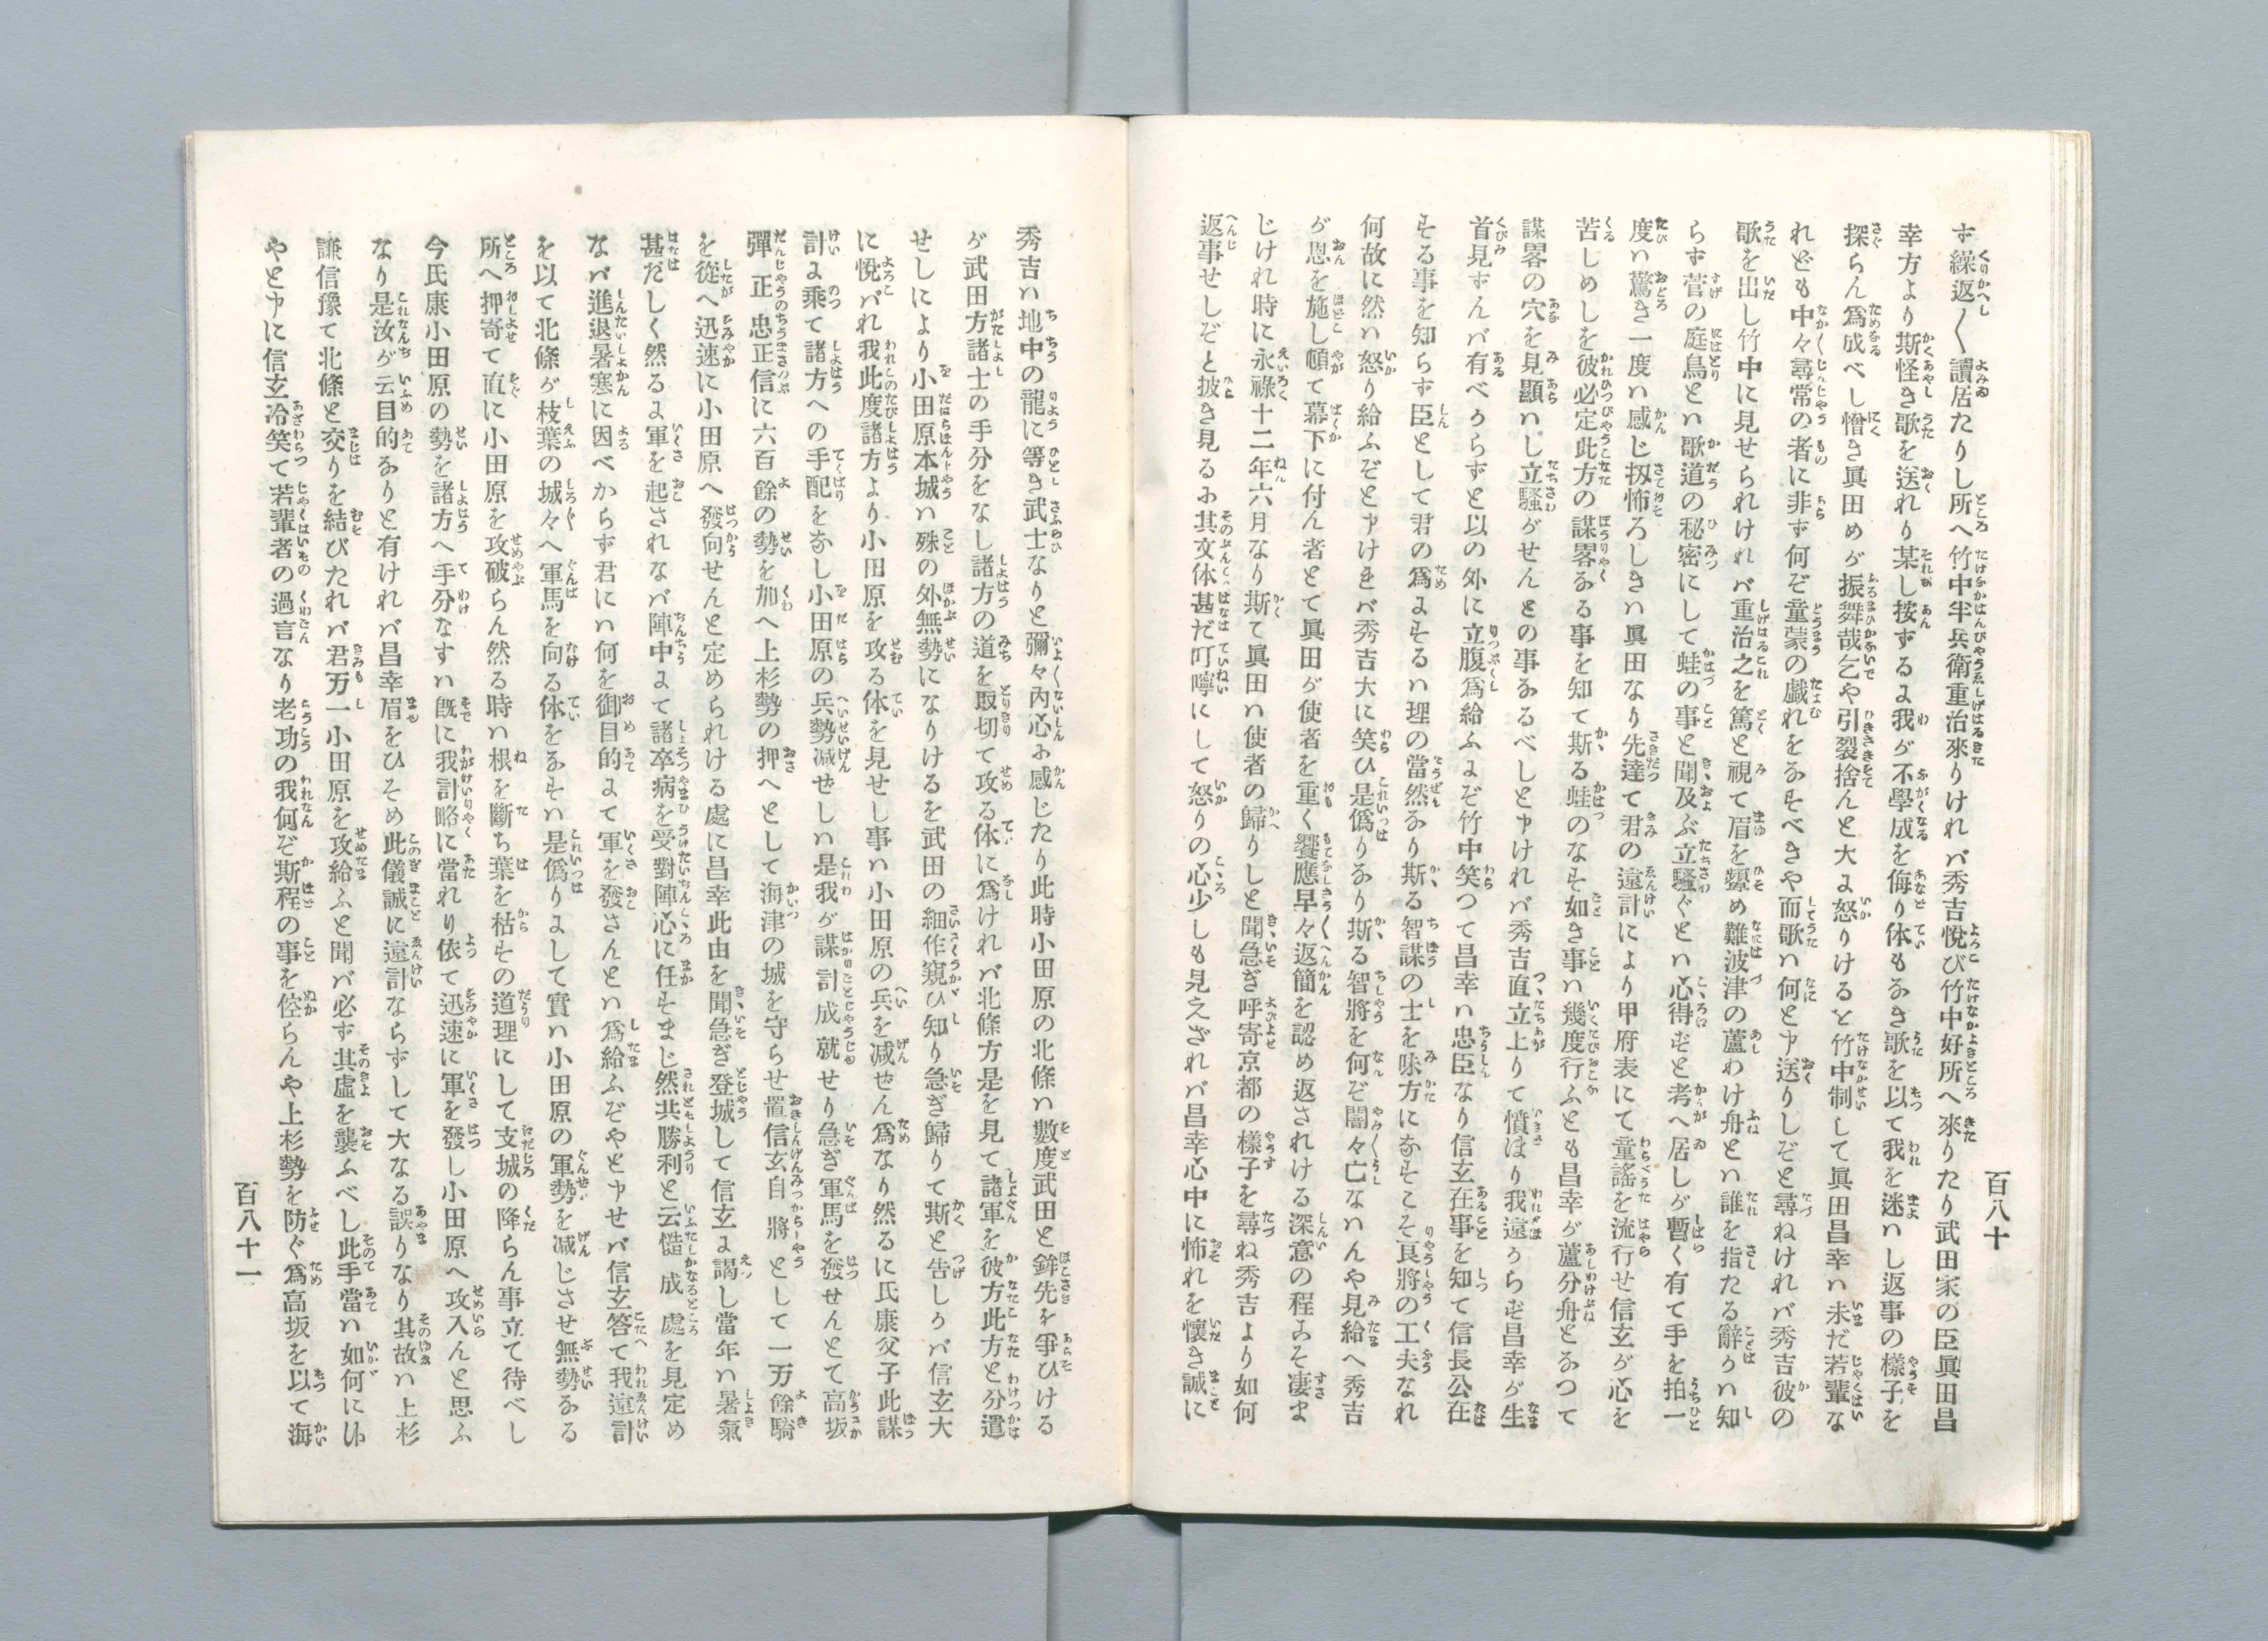 百八十
ず繰返〳〵讀居たりし所へ竹中半兵衛重治來りけれバ秀吉悅び竹中好所へ來りたり武田家の臣眞田昌
幸方より斯怪き歌を送れり某し按ずるに我が不學成を侮り体もなき歌を以て我を迷ハし返事の樣子を
探らん爲成べし憎き眞田めが振舞哉乞や引裂捨んと大に怒りけると竹中制して眞田昌幸ハ未だ若輩な
れども中々尋常の者に非ず何ぞ童蒙の戯れをなすべきや而歌ハ何と申送りしぞと尋ねけれバ秀吉彼の
歌を出し竹中に見せられけれバ重治之を篤と視て眉を顰め難波津の蘆わけ舟とハ誰を指たる辭かハ知
らず菅の庭鳥とハ歌道の秘密にして蛙の事と聞及ぶ立騒ぐとハ心得ずと考へ居しが暫く有て手を拍一
度ハ驚き一度ハ感じ扨怖ろしきハ眞田なり先達て君の遠計により甲府表にて童謠を流行せ信玄が心を
苦しめしを彼必定此方の謀畧なる事を知て斯る蛙のなす如き事ハ幾度行ふとも昌幸が蘆分舟となつて
謀畧の穴を見顯ハし立騒がせんとの事なるべしと申けれバ秀吉直立上りて憤ほり我遠からず昌幸が生
首見ずんバ有べからずと以の外に立腹爲給ふにぞ竹中笑つて昌幸ハ忠臣なり信玄在事を知て信長公在
する事を知らず臣として君の爲にするハ理の當然なり斯る智謀の士を味方になすこそ良將の工夫なれ
何故に然ハ怒り給ふぞと申けきバ秀吉大に笑ひ是僞りなり斯る智將を何ぞ闇々亡なハんや見給へ秀吉
が恩を施し頓て幕下に付ん者とて眞田が使者を重く饗應早々返簡を認め返されける深意の程こそ凄ま
じけれ時に永祿十二年六月なり斯て眞田ハ使者の歸りしと聞急ぎ呼寄京都の樣子を尋ね秀吉より如何
返事せしぞと披き見るに其文体甚だ叮嚀にして怒りの心少しも見えざれバ昌幸心中に怖れを懷き誠に
秀吉ハ地中の龍に等き武士なりと彌々內心に感じたり此時小田原の北條ハ數度武田と鉾先を爭ひける
が武田方諸士の手分をなし諸方の道を取切て攻る体に爲けれバ北條方是を見て諸軍を彼方此方と分遣
せしにより小田原本城ハ殊の外無勢になりけるを武田の細作窺ひ知り急ぎ歸りて斯と告しかバ信玄大
に悅バれ我此度諸方より小田原を攻る体を見せし事ハ小田原の兵を减ぜん爲なり然るに氏康父子此謀
計に乘て諸方への手配をなし小田原の兵勢减ぜしハ是我が謀計成就せり急ぎ軍馬を發せんとて高坂
彈正忠正信に六百餘の勢を加へ上杉勢の押へとして海津の城を守らせ置信玄自將として一万餘騎
を從へ迅速に小田原へ發向せんと定められける處に昌幸此由を聞急ぎ登城して信玄に謁し當年ハ暑氣
甚だしく然るに軍を起されなバ陣中にて諸卒病を受對陣心に任すまじ然共勝利と云慥成處を見定め
なバ進退暑寒に因べからず君にハ何を御目的にて軍を發さんとハ爲給ふぞやと申せバ信玄答て我遠計
を以て北條が枝葉の城々へ軍馬を向る体をなすハ是僞りにして實ハ小田原の軍勢を减じさせ無勢なる
所へ押寄て直に小田原を攻破らん然る時ハ根を斷ち葉を枯すの道理にして支城の降らん事立て待べし
今氏康小田原の勢を諸方へ手分なすハ旣に我計略に當れり依て迅速に軍を發し小田原へ攻入んと思ふ
なり是汝が云目的なりと有けれバ昌幸眉をひそめ此儀誠に遠計ならずして大なる誤りなり其故ハ上杉
謙信豫て北條と交りを結びたれバ君万一小田原を攻給ふと聞バ必ず其虛を襲ふべし此手當ハ如何に候
やと申に信玄冷笑て若輩者の過言なり老功の我何ぞ斯程の事を怠らんや上杉勢を防ぐ爲高坂を以て海
百八十一